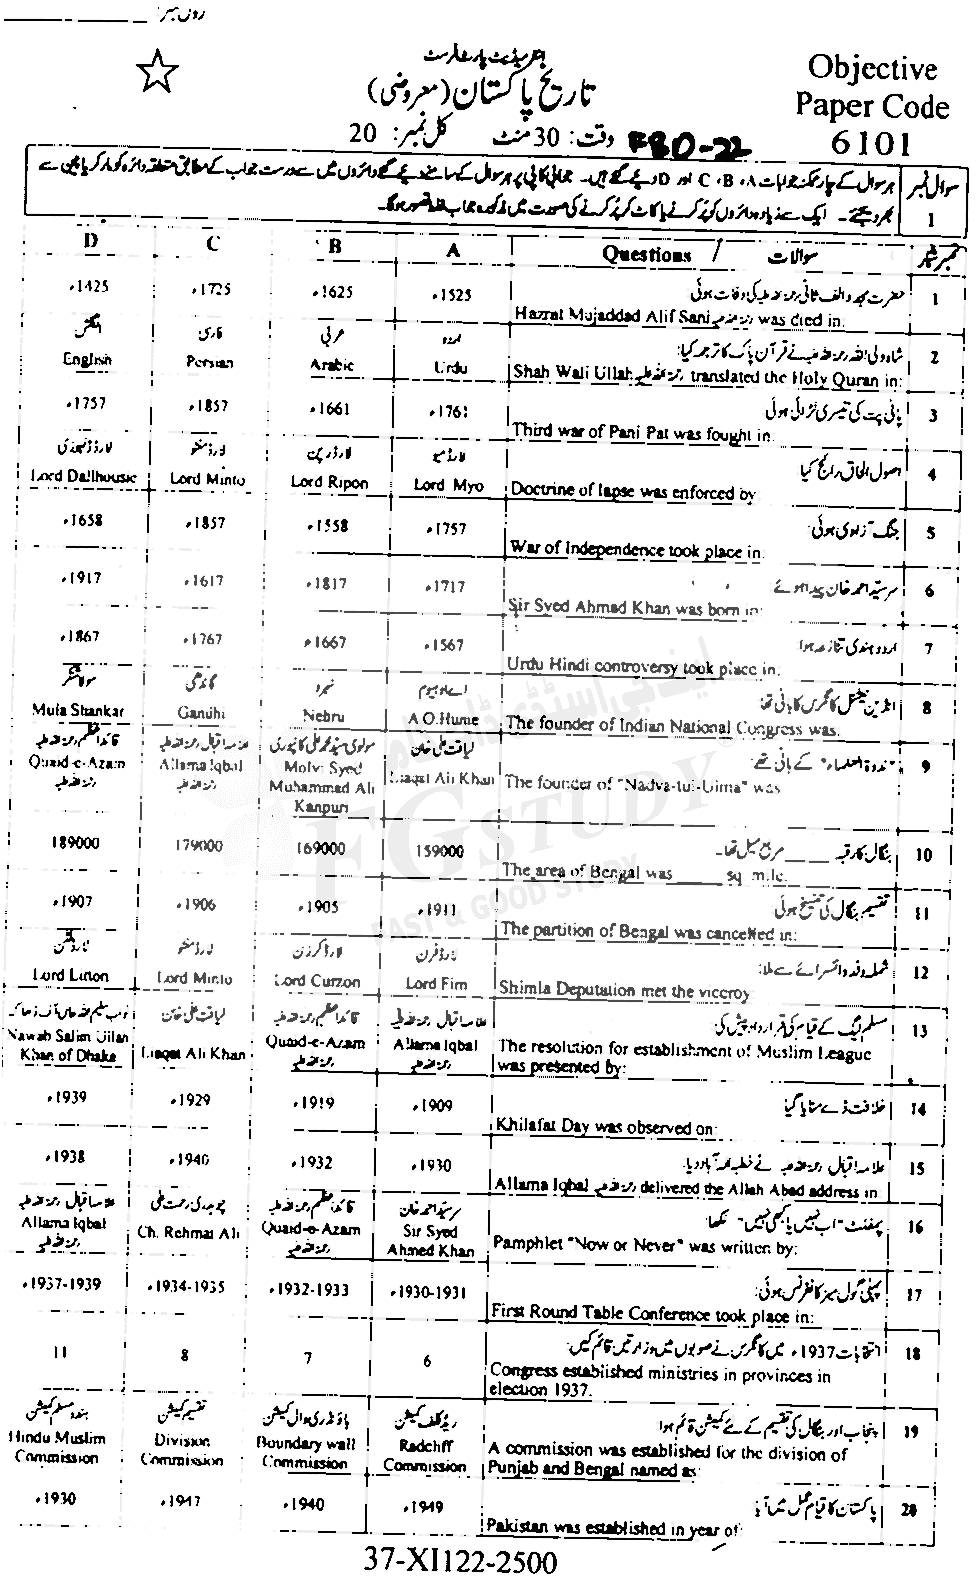 رول نمبر: ___________
انٹرمیڈیٹ پارٹ فرسٹ
تاریخ پاکستان (معروضی)
Objective
Paper Code
6101
وقت: 30 منٹ کل نمبر: 20
FBD-22
سوال نمبر 1
ہر سوال کے چار ممکنہ جوابات A، B، C اور D دیئے گئے ہیں۔ جوابی کاپی پر ہر سوال کے سامنے دیئے گئے دائروں میں سے درست جواب کے مطابق متعلقہ دائرہ کو مارکر یا پین سے
بھر دیجئے۔ ایک سے زیادہ دائروں کو پُر کرنے یا کاٹ کر پُر کرنے کی صورت میں مذکورہ جواب غلط تصور ہوگا۔
D C B A Questions / سوالات نمبر شمار
1 حضرت مجدد الف ثانی رحمۃ اللہ علیہ کی وفات ہوئی
Hazrat Mujaddad Alif Sani رحمۃ اللہ علیہ was died in:
1425ء 1725ء 1625ء 1525ء
2 شاہ ولی اللہ رحمۃ اللہ علیہ نے قرآن پاک کا ترجمہ کیا:
Shah Wali Ullah رحمۃ اللہ علیہ translated the Holy Quran in:
انگلش فارسی عربی اردو
English Persian Arabic Urdu
3 پانی پت کی تیسری لڑائی ہوئی
Third war of Pani Pat was fought in:
1757ء 1857ء 1661ء 1761ء
4 اصول الحاق رائج کیا
Doctrine of lapse was enforced by:
لارڈ ڈلہوزی لارڈ منٹو لارڈ رپن لارڈ میو
Lord Dallhousie Lord Minto Lord Ripon Lord Myo
5 جنگ آزادی ہوئی:
War of Independence took place in:
1658ء 1857ء 1558ء 1757ء
6 سر سید احمد خان پیدا ہوئے
Sir Syed Ahmad Khan was born in:
1917ء 1617ء 1817ء 1717ء
7 اردو ہندی تنازعہ ہوا
Urdu Hindi controversy took place in:
1867ء 1767ء 1667ء 1567ء
8 انڈین نیشنل کانگرس کا بانی تھا:
The founder of Indian National Congress was:
مولا شنکر گاندھی نہرو اے او ہیوم
Mula Shankar Gandhi Nehru A.O.Hume
9 "ندوۃ العلماء" کے بانی تھے:
The founder of "Nadva-tul-Ulma" was
قائد اعظم رحمۃ اللہ علیہ علامہ اقبال رحمۃ اللہ علیہ مولوی سید محمد علی کانپوری لیاقت علی خان
Quaid-e-Azam رحمۃ اللہ علیہ Allama Iqbal رحمۃ اللہ علیہ Molvi Syed Muhammad Ali Kanpuri Liaqat Ali Khan
10 بنگال کا رقبہ ____ مربع میل تھا۔
The area of Bengal was ______ sq. mile.
189000 179000 169000 159000
11 تقسیم بنگال کی تنسیخ ہوئی
The partition of Bengal was cancelled in:
1907ء 1906ء 1905ء 1911ء
12 شملہ وفد وائسرائے سے ملا:
Shimla Deputation met the viceroy
لارڈ لٹن لارڈ منٹو لارڈ کرزن لارڈ فرن
Lord Litton Lord Minto Lord Curzon Lord Firn
13 مسلم لیگ کے قیام کی قرارداد پیش کی
The resolution for establishment of Muslim League
was presented by:
نواب سلیم اللہ خان آف ڈھاکہ لیاقت علی خان قائد اعظم رحمۃ اللہ علیہ علامہ اقبال رحمۃ اللہ علیہ
Nawab Salim Ullah Khan of Dhaka Liaqat Ali Khan Quaid-e-Azam رحمۃ اللہ علیہ Allama Iqbal رحمۃ اللہ علیہ
14 خلافت ڈے منایا گیا
Khilafat Day was observed on:
1939ء 1929ء 1919ء 1909ء
15 علامہ اقبال رحمۃ اللہ علیہ نے خطبہ الہ آباد دیا:
Allama Iqbal رحمۃ اللہ علیہ delivered the Allah Abad address in
1938ء 1940ء 1932ء 1930ء
16 پمفلٹ "اب نہیں یا کبھی نہیں" لکھا:
Pamphlet "Now or Never" was written by:
علامہ اقبال رحمۃ اللہ علیہ چوہدری رحمت علی قائد اعظم رحمۃ اللہ علیہ سر سید احمد خان
Allama Iqbal رحمۃ اللہ علیہ Ch. Rehmat Ali Quaid-e-Azam رحمۃ اللہ علیہ Sir Syed Ahmed Khan
17 پہلی گول میز کانفرنس ہوئی:
First Round Table Conference took place in:
1937-1939ء 1934-1935ء 1932-1933ء 1930-1931ء
18 انتخابات 1937ء میں کانگرس نے صوبوں میں وزارتیں قائم کیں:
Congress established ministries in provinces in
election 1937.
11 8 7 6
19 پنجاب اور بنگال کی تقسیم کے لئے کمیشن قائم ہوا
A commission was established for the division of
Punjab and Bengal named as:
ہندو مسلم کمیشن تقسیم کمیشن باؤنڈری وال کمیشن ریڈ کلف کمیشن
Hindu Muslim Commission Division Commission Boundary wall Commission Radcliff Commission
20 پاکستان کا قیام عمل میں آیا:
Pakistan was established in year of:
1930ء 1947ء 1940ء 1949ء
37-XI122-2500
FG STUDY
FAST & GOOD STUDY